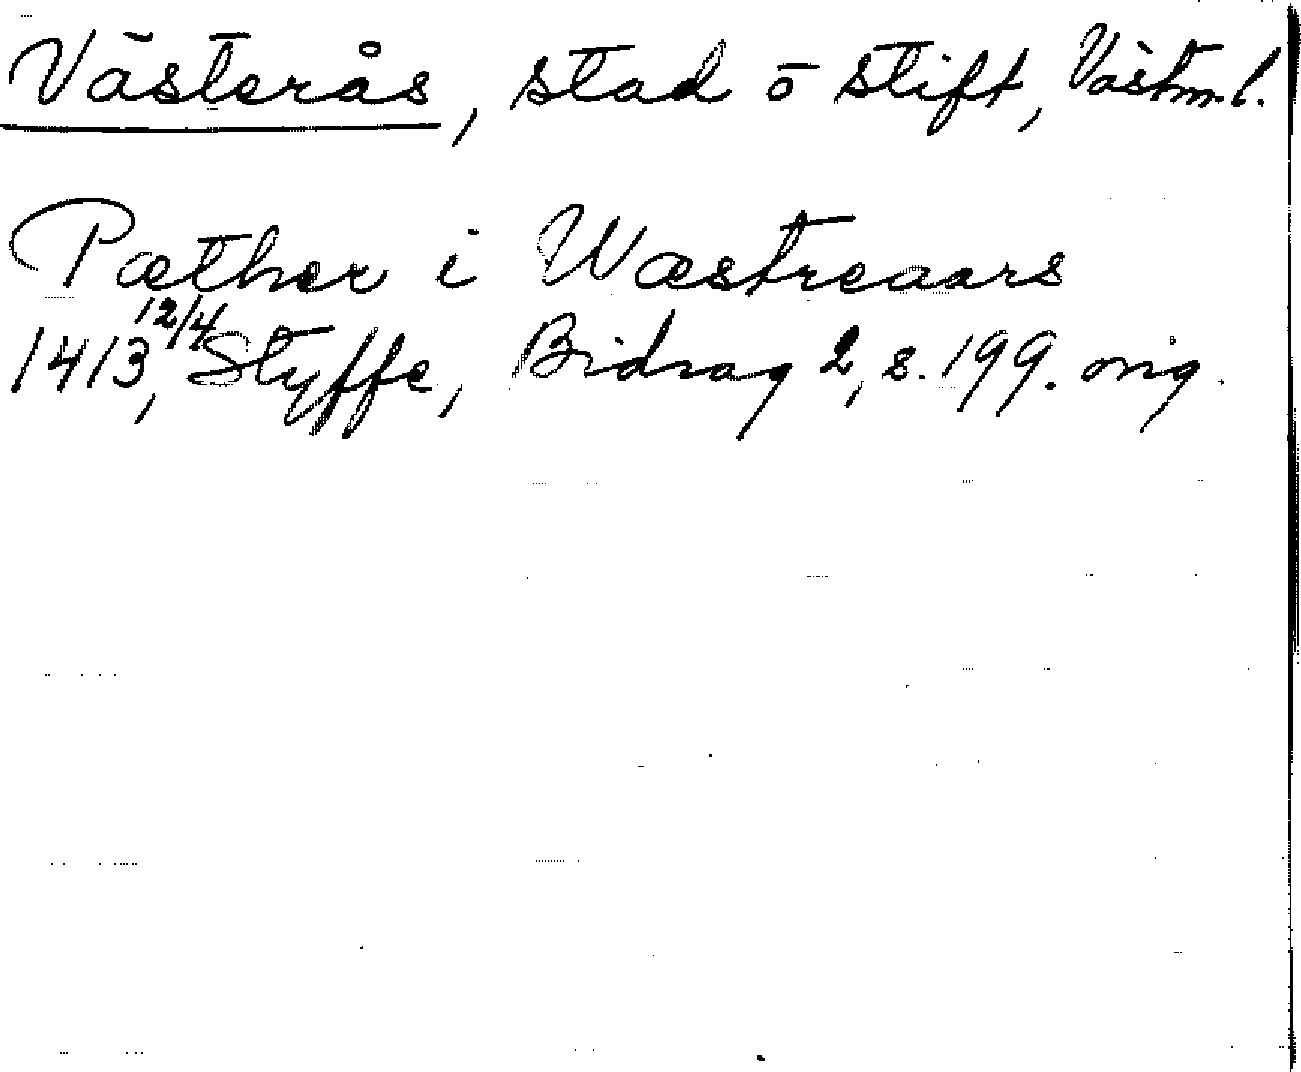 Västerås, stad o stift, Västm. l.
Pæther i Wæstreaars
1413 12/4, Styffe, Bidrag 2, s. 199. orig.